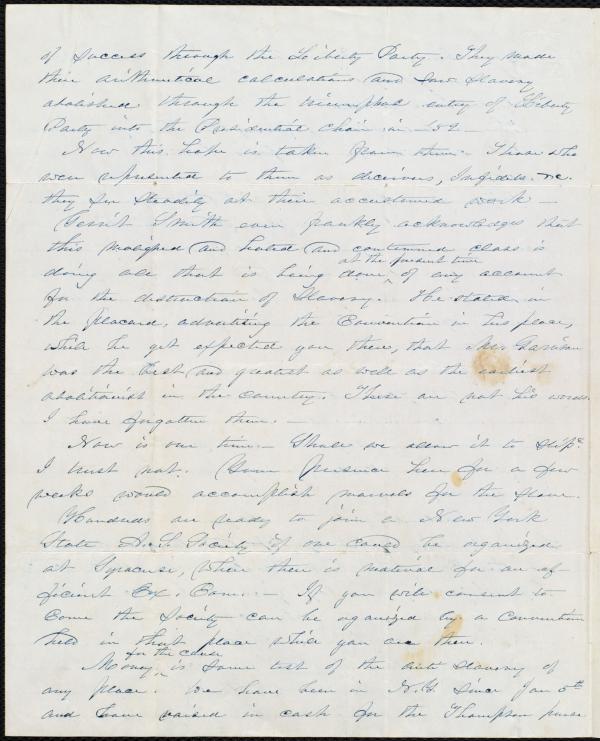 of success through the Liberty Party. They made
their arithmetical calculations and saw Slavery
abolished through the triumphal entry of Liberty
Party into the Presidential Chair in -52-
Now this hope is taken from them. Those who
were represented to them as deceivers, Infidels &c.
they see steadily at their accustomed work -
Gerrit Smith even frankly acknowledges that
this maligned and hated and contemned class is
at the present time
doing all that is being done, of any account
for the destruction of Slavery. He stated in
the placard, advertising the Convention in his place,
while he yet expected you there, that Mr Garrison
was the best and greatest as well as the earliest
abolitionist in the country. These are not his words.
I have forgotten them. -
Now is our time - Shall we allow it to slip?
I trust not. Your presence here for a few
weeks would accomplish marvels for the slave.
Hundreds are ready to join a New York
State A.S. Society if one could be organized
at Syracuse, where there is material for an ef
ficient Ex. Com. - If you will consent to
come the Society can be organized by a Convention
held in that place while you are there.
for the cause
Money is some test of the anti Slavery of
any place. We have been in N.Y. since Jan 5th
and have raised in cash for the Thompson purse